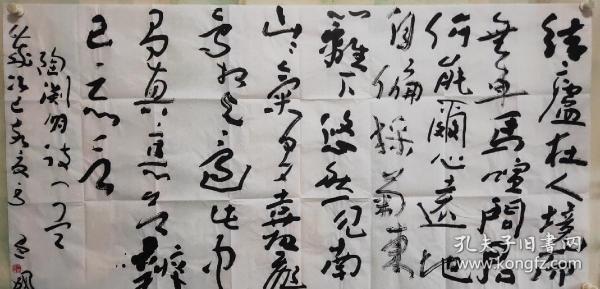 結廬在人境而
無車馬喧問君
何能爾心遠地
自偏採菊東
籬下悠然見南
山〻氣日夕佳飛
鳥相與還此中
有真意欲辯
已忘言
陶渊明诗一首
歲次己亥夏月
孔夫子旧书网
www.kongfz.com